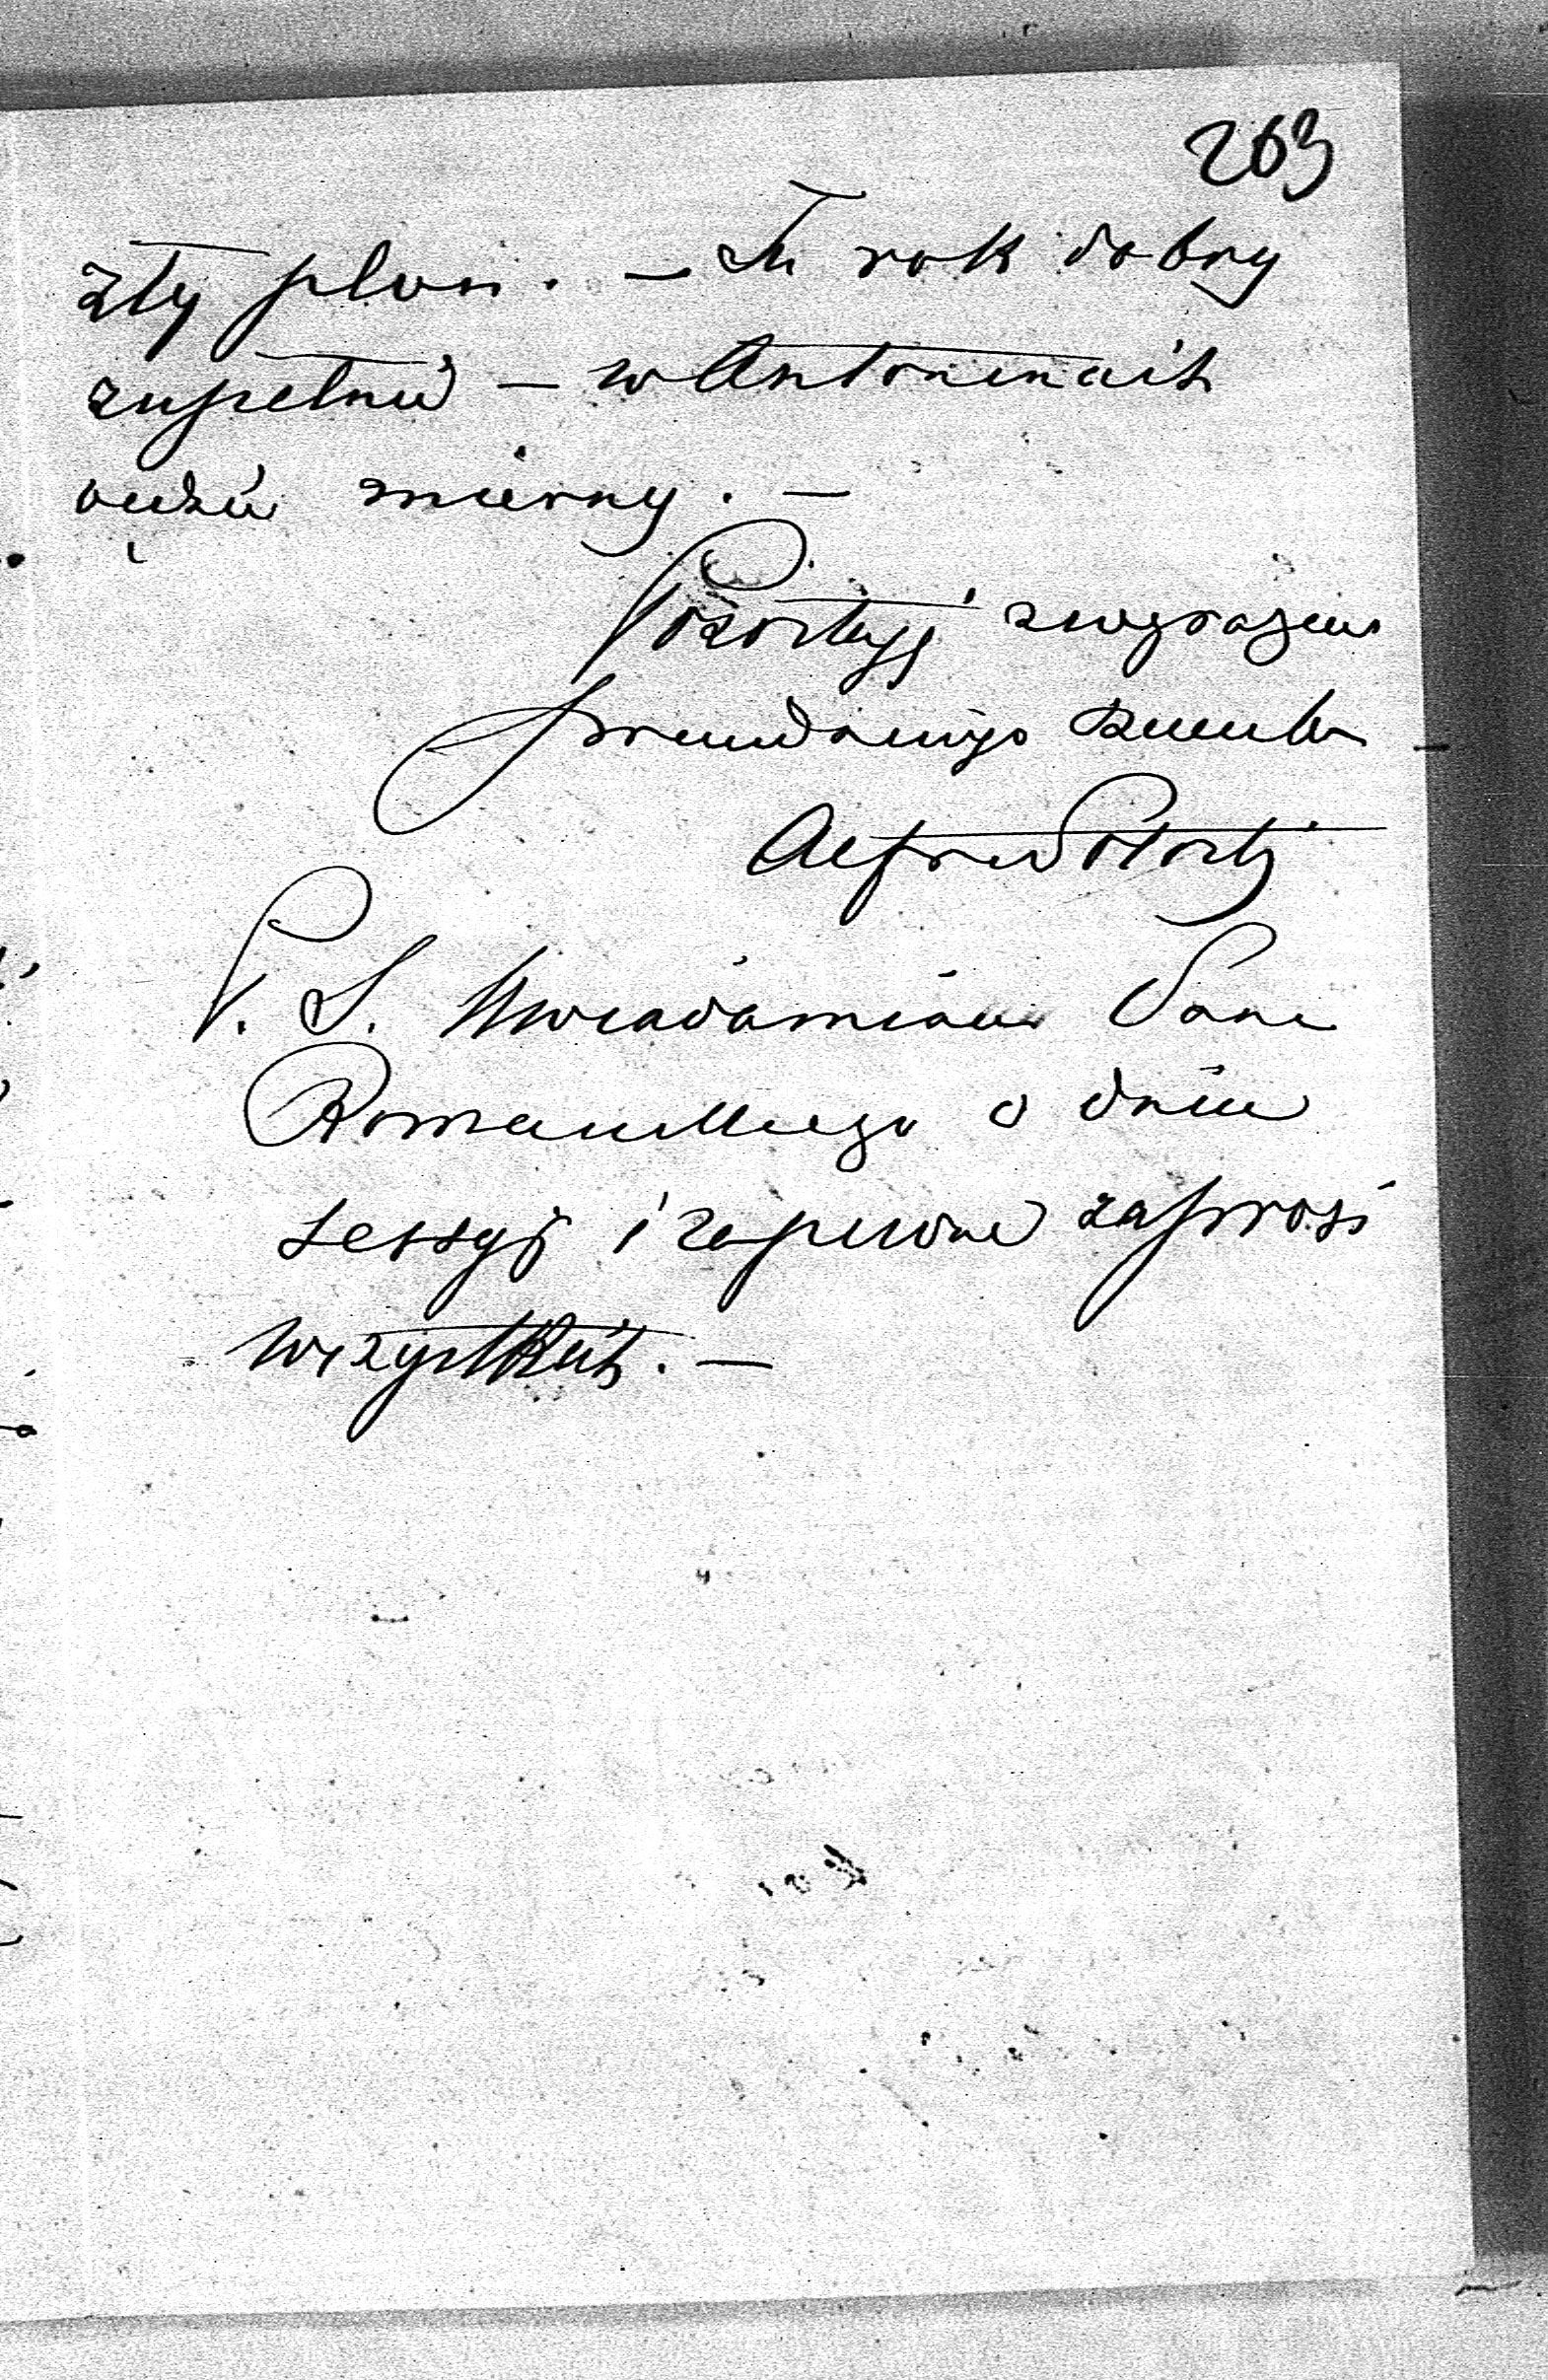 263
zły plon. — Tu rok dobry
zupełnie — w Antoninach
bardzo mierny. —
Pozostaję z wyrazem
prawdziwego szacunku
Alfred Potocki
P. S. Uwiadamiam Pana
Romanskiego o dniu
sessyi i zapewne zaprosi
wszystkich. —